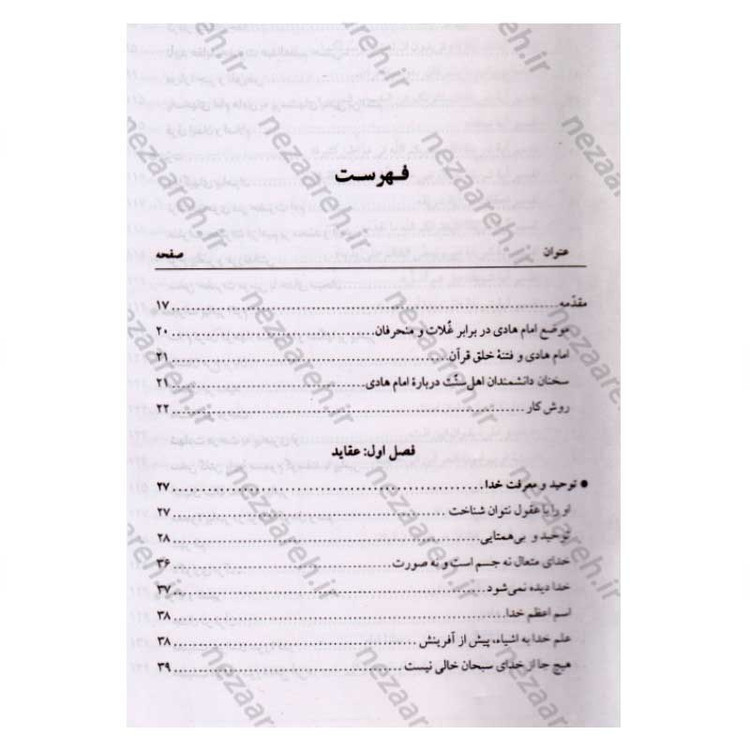 فهرست
عنوان صفحه
مقدّمه ۱۷
موضع امام هادی در برابر غُلات و منحرفان ۲۰
امام هادی و فتنهٔ خلق قرآن ۲۱
سخنان دانشمندان اهل‌سنّت دربارهٔ امام هادی ۲۱
روش کار ۲۲
فصل اول: عقاید
● توحید و معرفت خدا ۲۷
او را با عقول نتوان شناخت ۲۷
توحید و بی‌همتایی ۲۸
خدای متعال نه جسم است و نه صورت ۳۶
خدا دیده نمی‌شود ۳۷
اسم اعظم خدا ۳۸
علم خدا به اشیاء، پیش از آفرینش ۳۸
هیچ جا از خدای سبحان خالی نیست ۳۹
nezaareh.ir